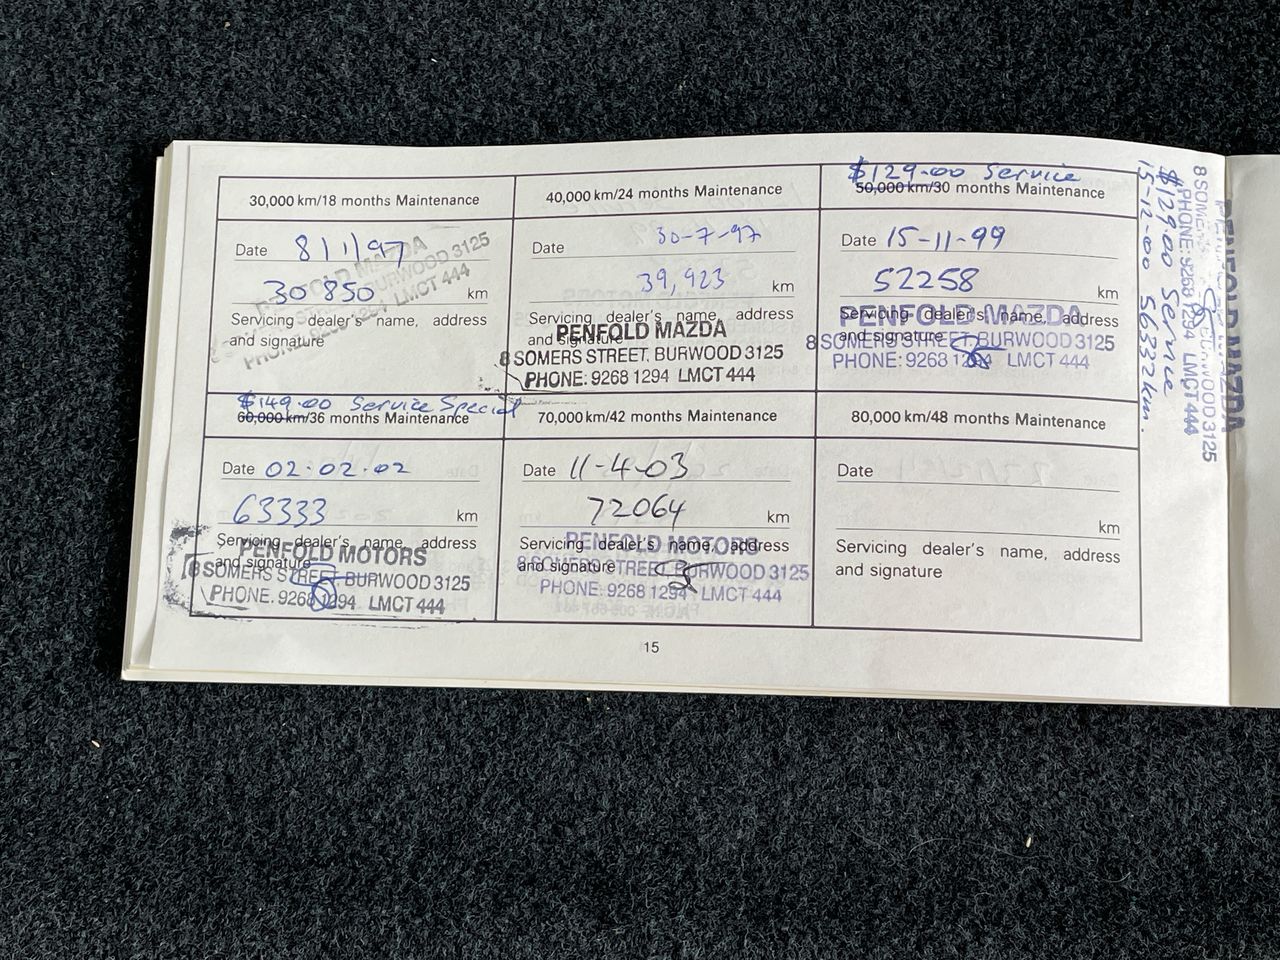 30,000 km/18 months Maintenance
Date 8/1/97
30850 km
Servicing dealer's name, address
and signature
MAZDA
BURWOOD 3125
LMCT 444
40,000 km/24 months Maintenance
Date 30-7-97
39,923 km
Servicing dealer's name, address
and signature
PENFOLD MAZDA
8 SOMERS STREET, BURWOOD 3125
PHONE: 9268 1294 LMCT 444
$129.00 Service
50,000 km/30 months Maintenance
Date 15-11-99
52258 km
Servicing dealer's name, address
and signature
PENFOLD MAZDA
8 SOMERS STREET, BURWOOD 3125
PHONE: 9268 1294 LMCT 444
$149.00 Service Special
60,000 km/36 months Maintenance
Date 02.02.02
63333 km
Servicing dealer's name, address
and signature
PENFOLD MOTORS
8 SOMERS STREET BURWOOD 3125
PHONE. 9268 1294 LMCT 444
70,000 km/42 months Maintenance
Date 11-4-03
72064 km
Servicing dealer's name, address
and signature
PENFOLD MOTORS
8 SOMERS STREET, BURWOOD 3125
PHONE: 9268 1294 LMCT 444
80,000 km/48 months Maintenance
Date
km
Servicing dealer's name, address
and signature
PENFOLD MAZDA
BURWOOD 3125
PHONE: 9268 1294 LMCT 444
$129.00 Service
15-12-00 56332km.
15